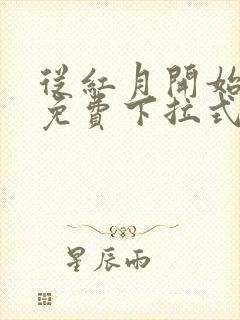 從紅月開始
免費下拉式
星辰雨